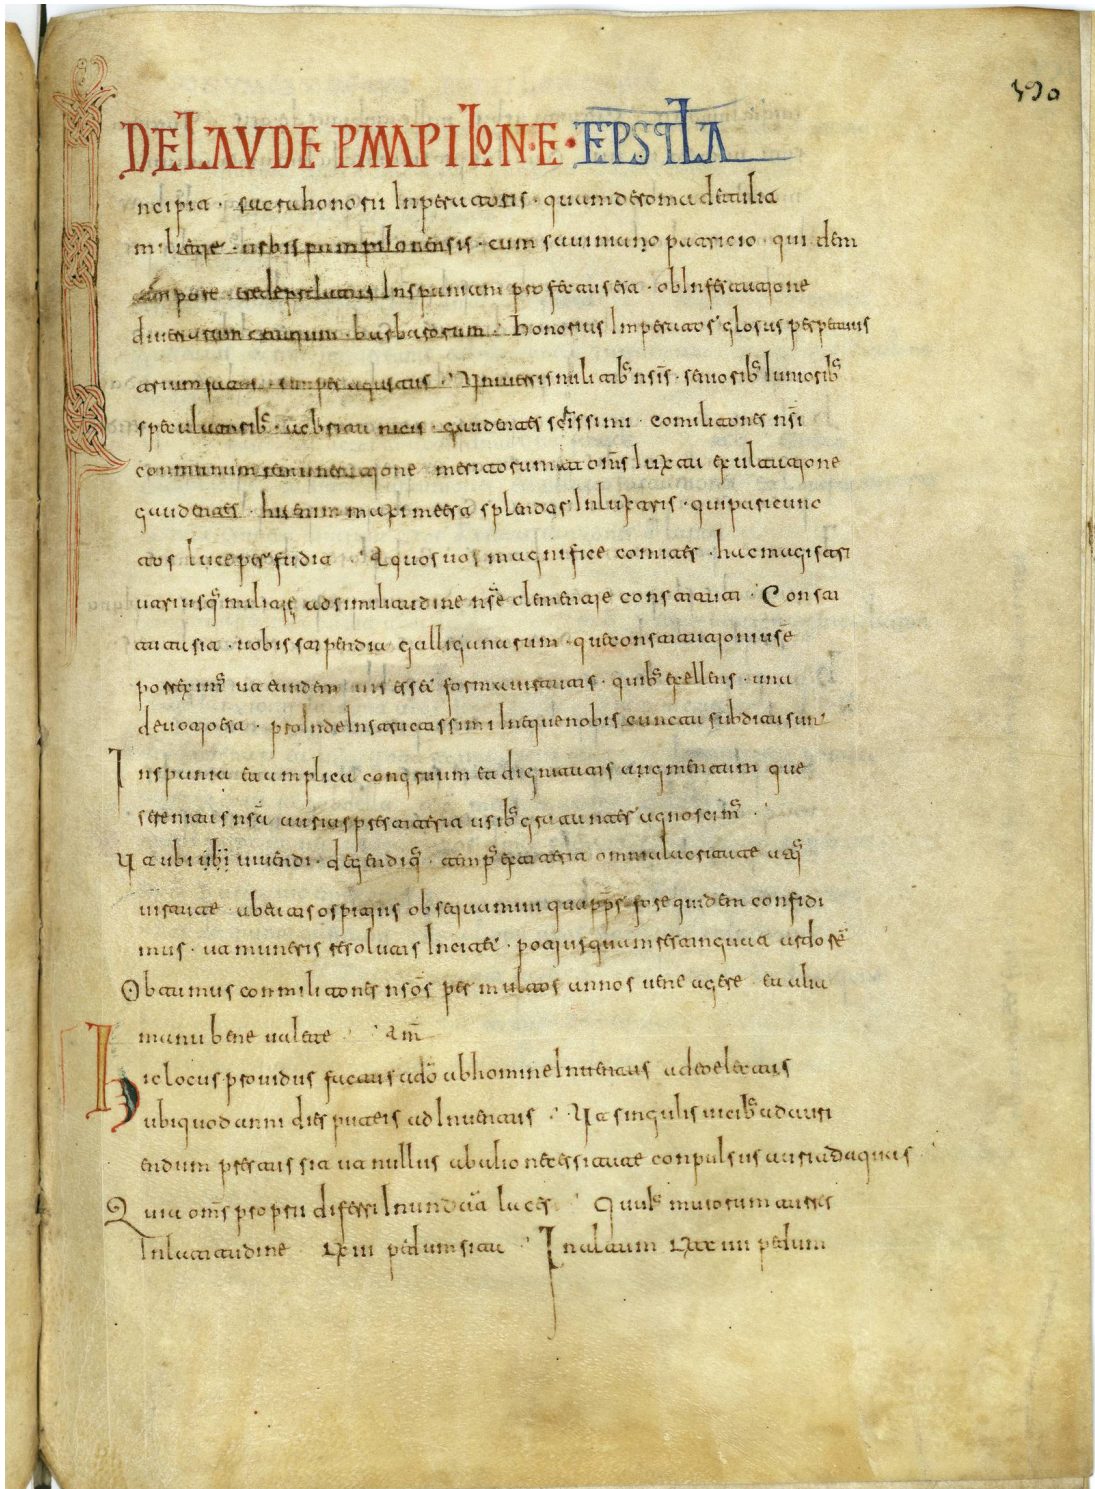 DE LAVDE PAMPILONE · EPSTLA
ncipit · sacra honorii Inperatoris · quam de roma detulit
militie · urbis pampilonensis · cum saviniano patricio · qui dem
tempore · predeprelatus Inspaniam profectus est · ob Infestatione
diversarum gentium · barbarorum · honorius Imperator glosus perpetuus
triumfator · semper agustus · Universis militibꝰ nsīs · senioribꝰ Iunioribꝰ
speculantibꝰ · ac britannicis · gaudentes scīssimi · comilitones nsī
communium remuneratione meritorum et om̄s Iuxta exultatione
gaudentes · hic enim maxime est splendor Inlustris · qui pari cunc
tos luce perfudit · A quos vos magnifice comites · hac magistri
utriusqꝰ militie adsimilitudine nsē clementie constituti · Consti
tuta sit · vobis stipendia galliganarum · que constitutioni usē
porreximꝰ ut eiusdem vis esset forma virtutis · quibꝰ excellens · una
devotio est · proInde Instructissimi Ineque nobis cuncta subdita sunt
Inspania et amplica congruum et dignitatis augmentum que
serenitas nsā
Ut ubi ubi vivendi · degendiqꝰ
virtute · ubi tis ospitiis obsequamini quapps̄ fore quidem confidi
mus · ut muneris resoluatis Incitet · potius quam restinguat ardorē
Obtamus conmilitones nsōs per multos annos vene agere et alia
manu bene valete · Am̄
hic locus providus factus adō ab homine Inventus a deo electus
ubi quod anni dies puteis ad Inventus · Ut singulis vicibꝰ ad auri
endum presens sit ut nullus ab alio necessitate conpulsus auriad aquas
Quia om̄s propri diferri Inundat luces · Cuius murorum turres
In latitudine LXIII pedum sita · In altum LXXXIIII pedum